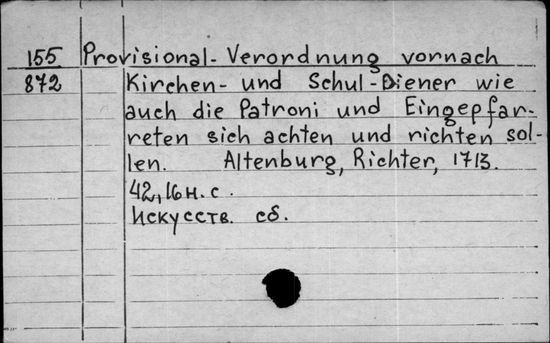 155 Provisional-Verordnung vornach
872 Kirchen- und Schul-Diener wie
auch die Patroni und Eingepfar-
reten sich achten und richten sol-
len. Altenburg, Richter, 1713.
42, 16 н. с.
Искусств. сб.